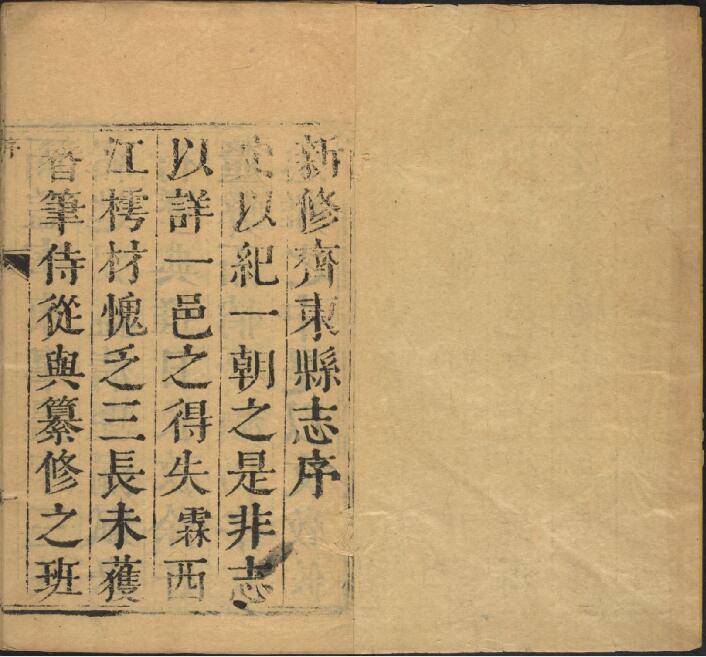 新修齊東縣志序
史以紀一朝之是非志
以詳一邑之得失霖西
江樗材愧乏三長未蒦
簪筆侍從與纂修之班
序